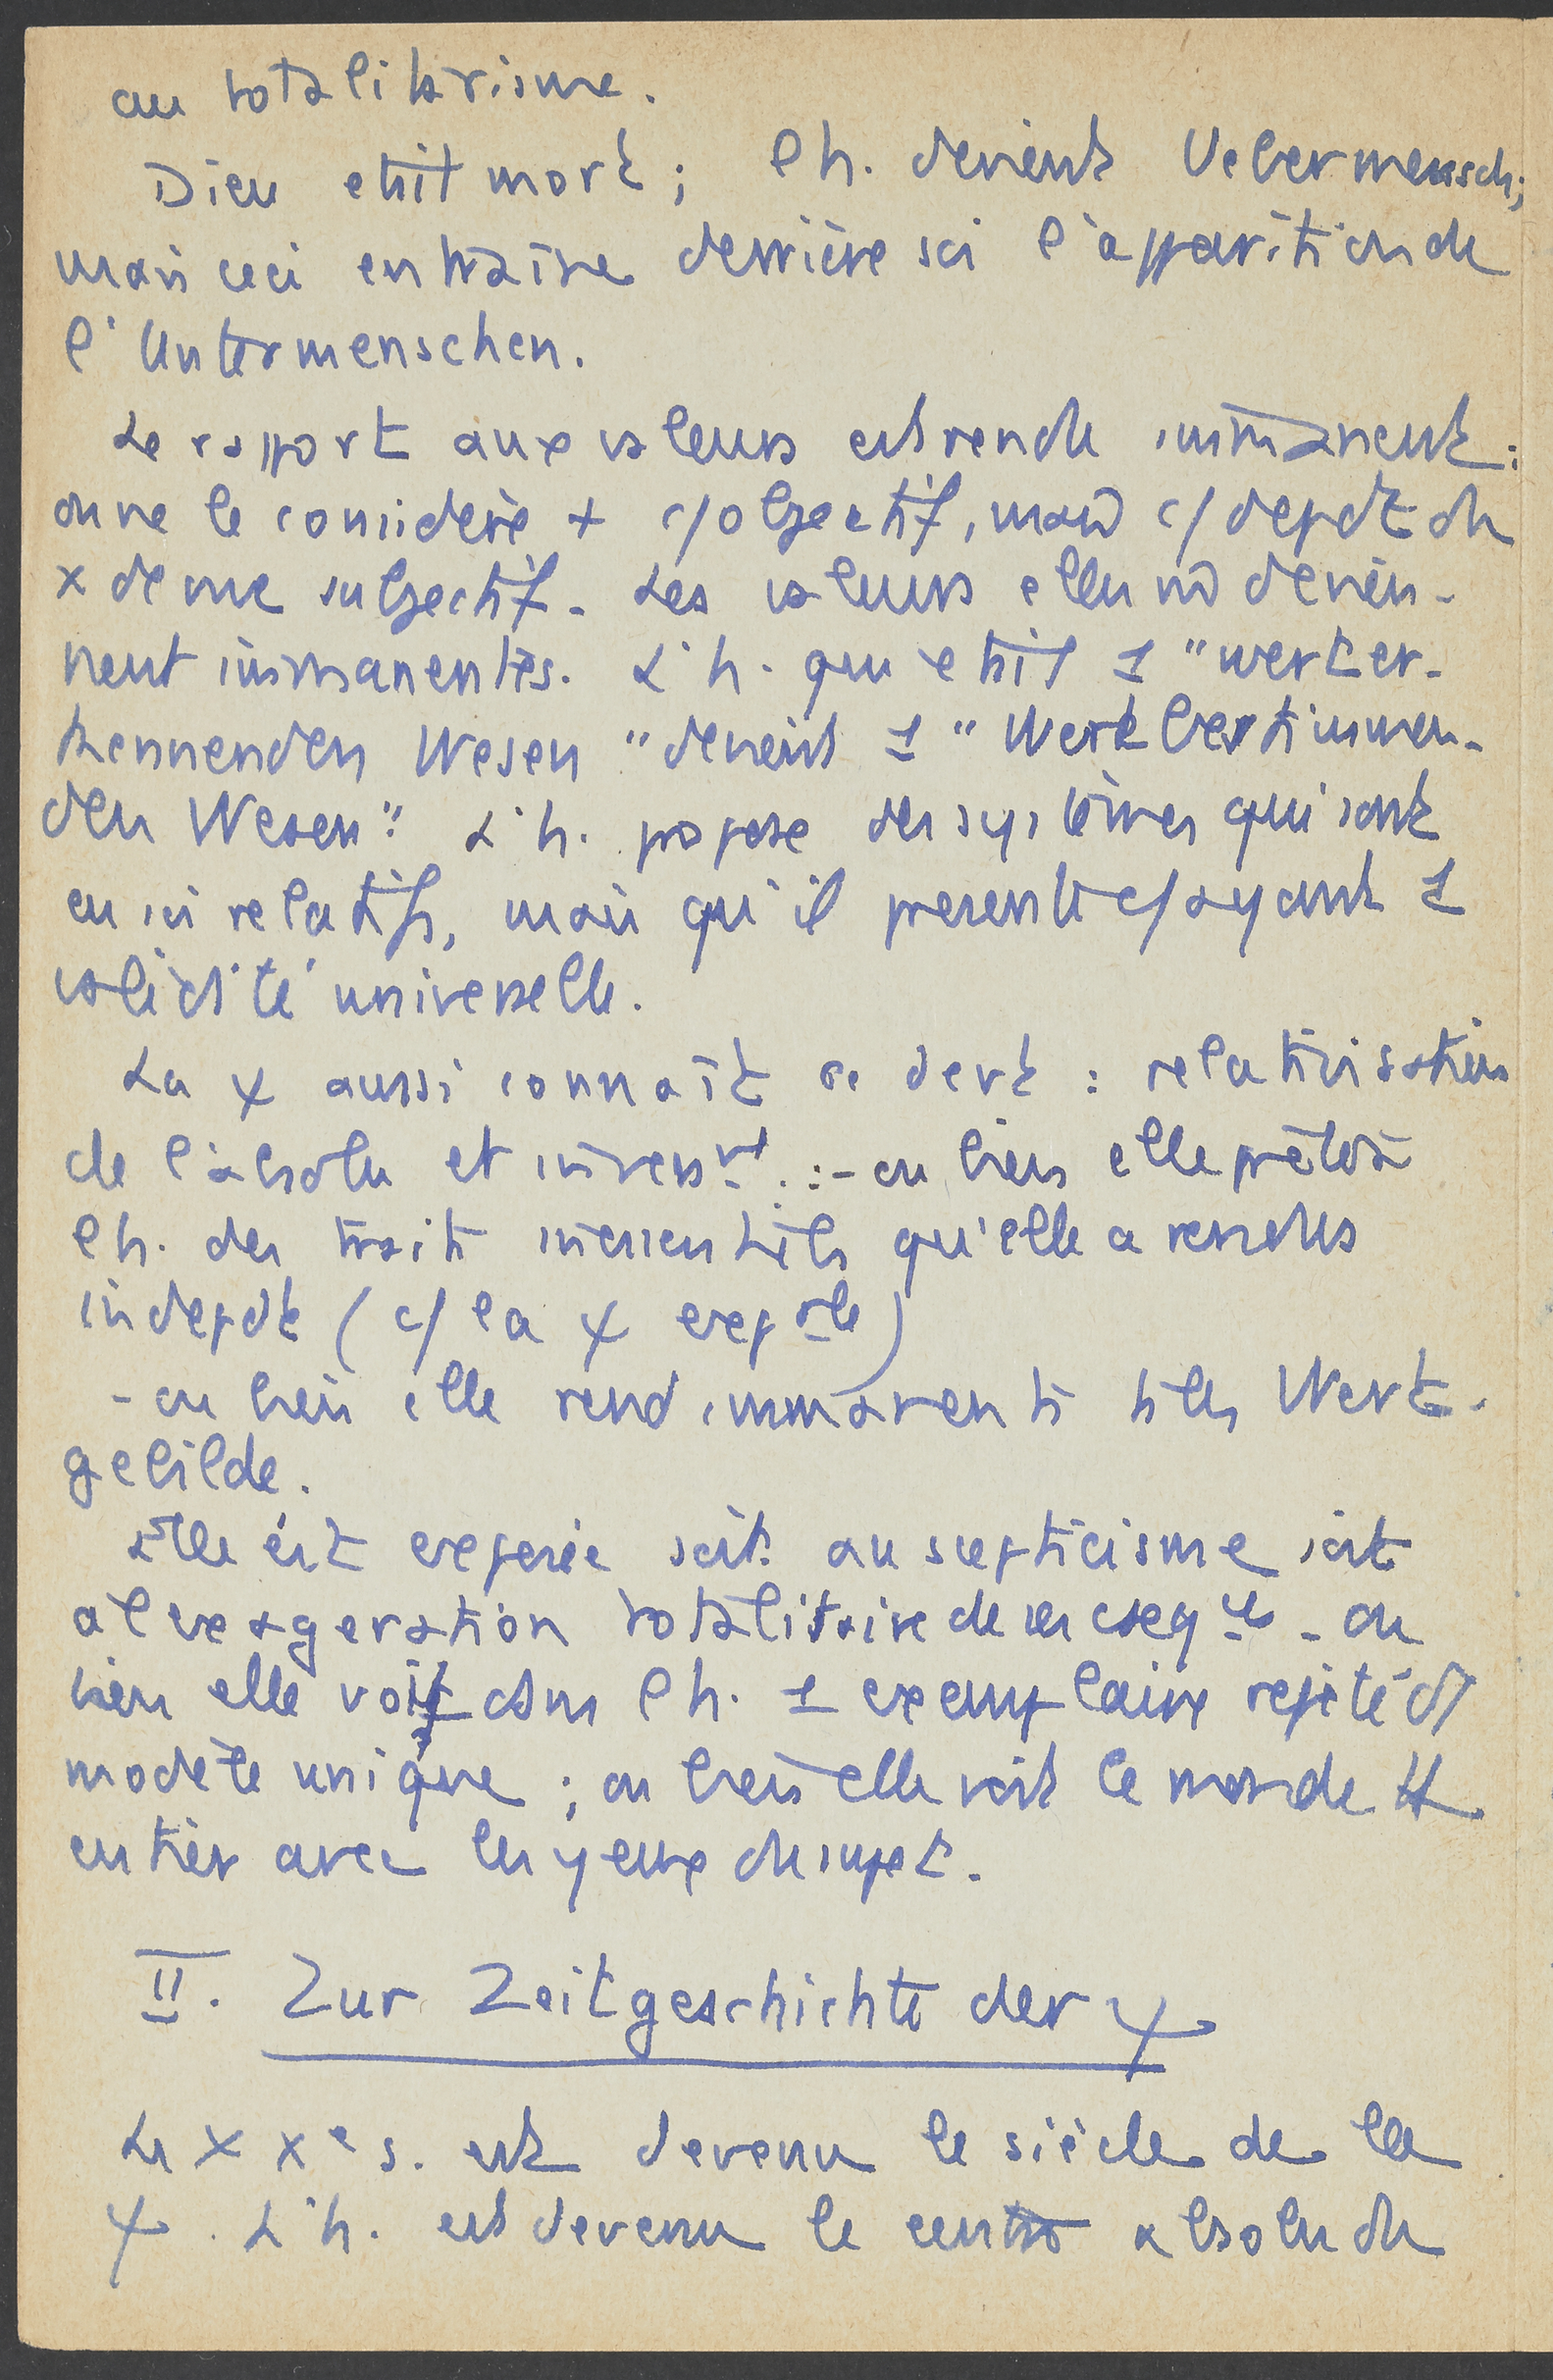 au totalitarisme.
Dieu était mort ; l'h. devient Uebermensch ;
mais ceci entraîne derrière soi l'apparition de
l'Untermenschen.
Le rapport aux valeurs est rendu immanent :
on ne le considère + c/ objectif, mais c/ depdt du
x de vue subjectif. Les valeurs elles-mêmes devien-
nent immanentes. L'h. qui était 1 "werter-
kennenden Wesen" devient 1 "Wertbestimmen-
den Wesen". L'h. propose des systèmes qui sont
en soi relatifs, mais qu'il présente c/ ayant 1
validité universelle.
La ψ aussi connaît ce dert : relativisation
de l'absolu et inverst : - ou bien elle prête à
l'h. des traits inessentiels qu'elle a rendus
indepdt (c/ la ψ expale)
- ou bien elle rend immanents ts les Wert-
gebilde.
Elle est exposée soit au scepticisme soit
à l'exagération totalitaire de ses cseqces - ou
bien elle voit dans l'h. 1 exemplaire répété d'1
modèle unique ; ou bien elle voit le monde tt
entier avec les yeux du sujet.
II. Zur Zeitgeschichte der ψ
Le XXe s. est devenu le siècle de la
ψ. L'h. est devenu le centre absolu du